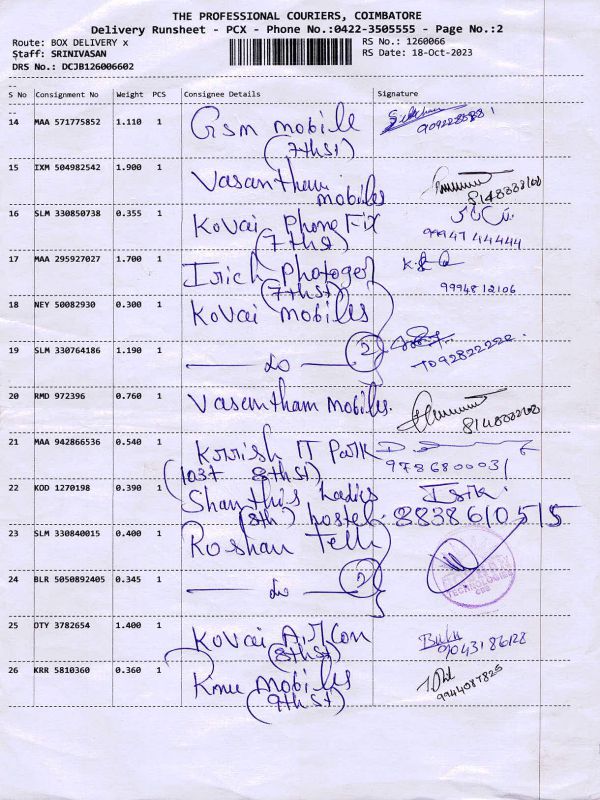 THE PROFESSIONAL COURIERS, COIMBATORE
Delivery Runsheet - PCX - Phone No.:0422-3505555 - Page No.:2
Route: BOX DELIVERY x RS No.: 1260066
Staff: SRINIVASAN RS Date: 18-Oct-2023
DRS No.: DCJB126006602
S No Consignment No Weight PCS Consignee Details Signature
14 MAA 571775852 1.110 1 Gsm mobile
(7thst)
15 IXM 504982542 1.900 1 Vasantham
mobiles
16 SLM 330850738 0.355 1 Kovai Phone Fix
(7thst) 99947 44444
17 MAA 295927027 1.700 1
(7thst) 9994812106
18 NEY 50082930 0.300 1 Kovai mobiles
19 SLM 330764186 1.190 1 do 2 7092822222
20 RMD 972396 0.760 1 Vasantham mobiles.
21 MAA 942866536 0.540 1 Krrish IT Park
(1037 8thst) 9786800031
22 KOD 1270198 0.390 1 Shanthi's Ladies
(8th) hostel. 8838610515
23 SLM 330840015 0.400 1 Roshan Tele
24 BLR 5050892405 0.345 1 do 2
TECHNOLOGIES
CBE
25 DTY 3782654 1.400 1 Kovai Aircon
(8thst) 9043186128
26 KRR 5810360 0.360 1 mobiles
(9thst) 9944087825